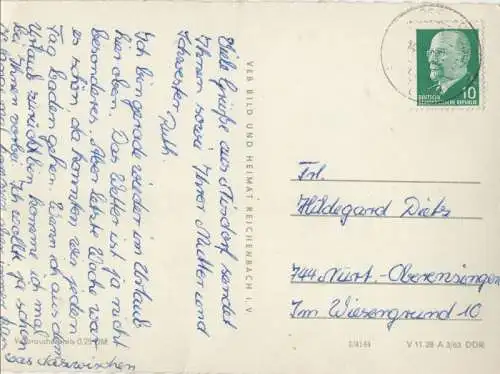 Viele Grüße aus Nindorf sendet
Ihnen sowie Ihrer Mutter und
Schwester Ruth.
Ich bin gerade wieder im Urlaub
hier oben. Das Wetter ist ja nicht
besonderes. Aber letzte Woche war
es schön, da konnten wir jeden
Tag baden gehen. Wenn ich aus dem
Urlaub zurück bin komme ich mal
bei Ihnen vorbei. Ich wollte ja schon
immer
was dazwischen
VEB BILD UND HEIMAT REICHENBACH I. V.
Verbraucherpreis 0,20 DM
10
DEUTSCHE
DEMOKRATISCHE REPUBLIK
Frl.
Hildegard Dietz
744 Nürt.-Oberensingen
Im Wiesengrund 10
V 11.28 A 3/63 DDR